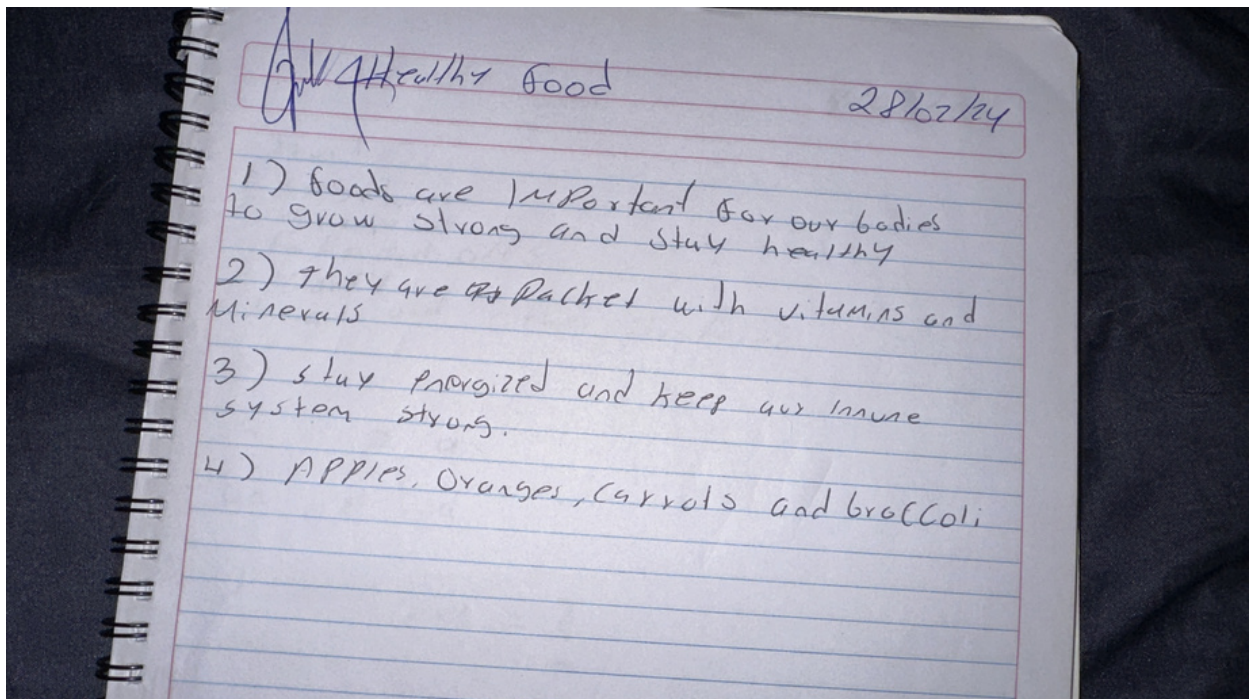 Healthy Food
28/02/24
1) Foods are IMPortant For our bodies
to grow strong and stay healthy
2) They are Packet with vitamins and
Minerals
3) stay energized and keep our innune
system strong.
4) APPles, Oranges, Carrots and broccoli